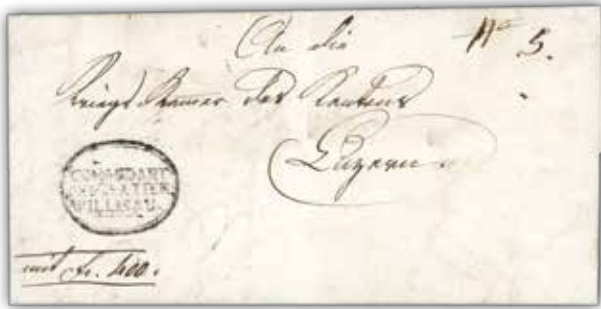 An die
No 5.
Kriegs Kammer des Kantons
Luzern.
COMMANDANT
WILLISAU.
mit fr. 400.